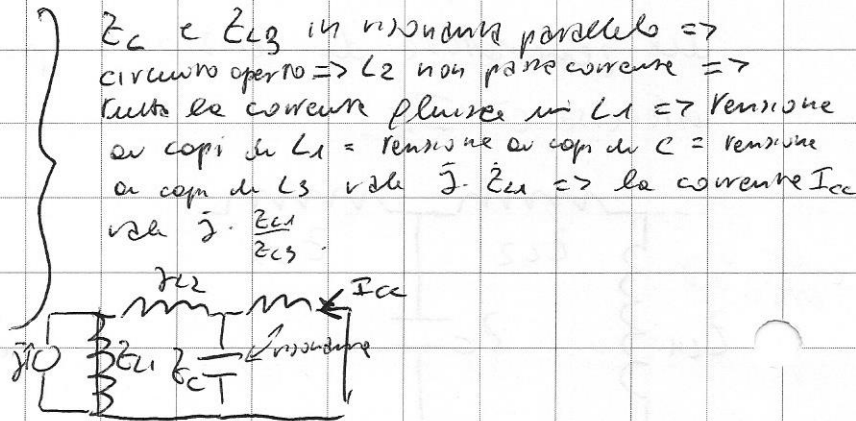 Żc e ŻL3 in risonanza parallelo =>
circuito aperto => L2 non passa corrente =>
tutta la corrente fluisce in L1 => tensione
ai capi di L1 = tensione ai capi di C = tensione
ai capi di L3 vale J̄. ŻL1 => la corrente Icc
vale J̄. ŻL1/ŻL3.
ŻL2 Icc
J̄ ŻL1 Żc risonanza